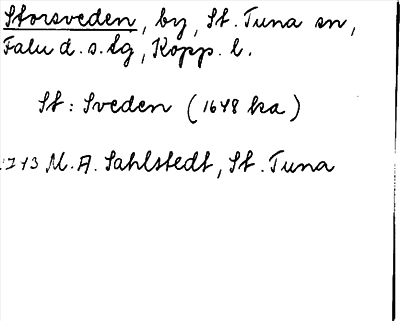 Storsveden, by, St. Tuna sn,
Falu d.s.lg, Kopp. l.
St: Sveden (1648 ka)
1713 M.A. Sahlstedt, St. Tuna